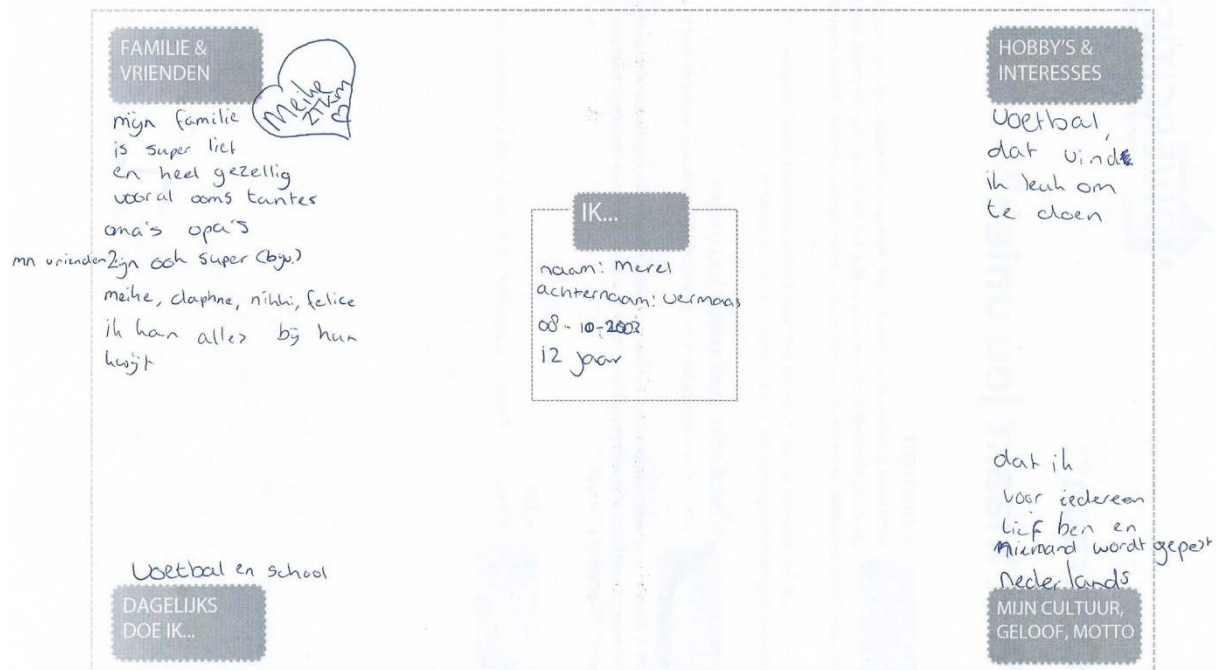 FAMILIE &
VRIENDEN
Meike
mijn familie
is super lief
en heel gezellig
vooral ooms tantes
oma's opa's
mn vrienden zijn ook super (bijv.)
meike, daphne, nikki, felice
ik kan alles bij hun
kwijt
HOBBY'S &
INTERESSES
Voetbal,
dat vind
ik leuk om
te doen
IK...
naam: Merel
achternaam: Vermaas
08-10-2003
12 jaar
Voetbal en school
DAGELIJKS
DOE IK...
dat ik
voor iedereen
lief ben en
niemand wordt gepest
nederlands
MIJN CULTUUR,
GELOOF, MOTTO